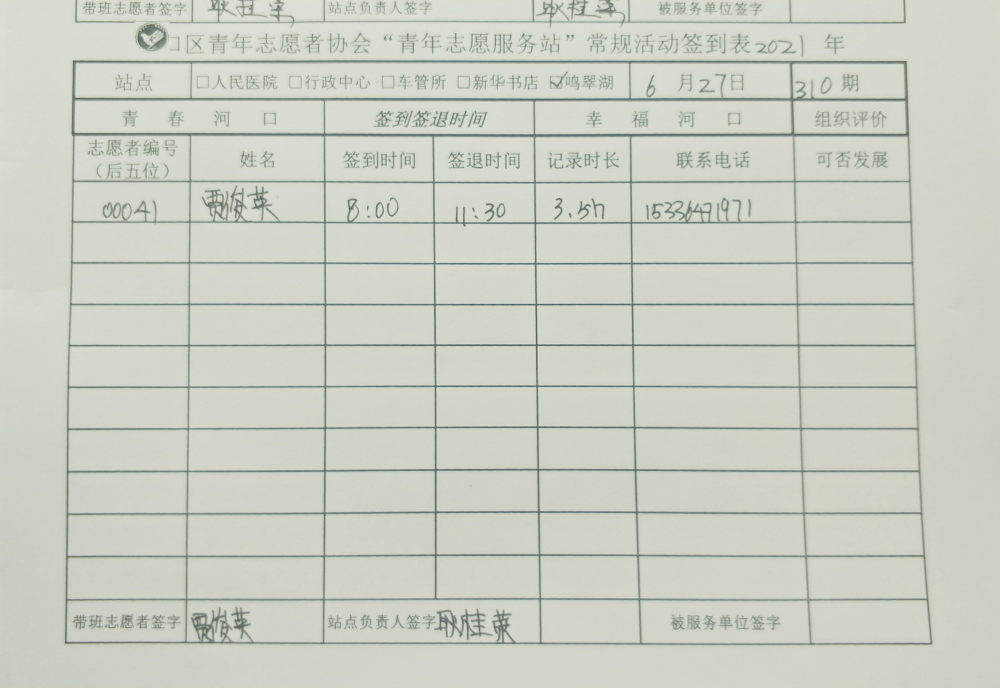 带班志愿者签字 耿桂荣 站点负责人签字 耿桂荣 被服务单位签字
口区青年志愿者协会“青年志愿服务站”常规活动签到表2021 年
站点 □人民医院 □行政中心 □车管所 □新华书店 ☑鸣翠湖 6 月27日 310期
青 春 河 口 签到签退时间 幸 福 河 口 组织评价
志愿者编号（后五位） 姓名 签到时间 签退时间 记录时长 联系电话 可否发展
00041 贾俊英 8:00 11:30 3.5h 15336471971
带班志愿者签字 贾俊英 站点负责人签字 耿桂荣 被服务单位签字